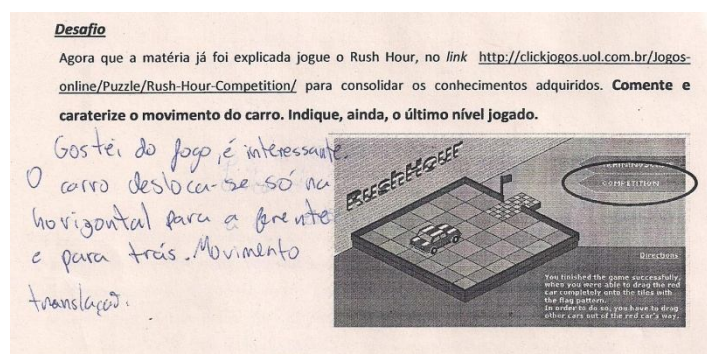 Desafio
Agora que a matéria já foi explicada jogue o Rush Hour, no link http://clickjogos.uol.com.br/Jogos-
online/Puzzle/Rush-Hour-Competition/ para consolidar os conhecimentos adquiridos. Comente e
caraterize o movimento do carro. Indique, ainda, o último nível jogado.
Gostei do jogo, é interessante.
O carro desloca-se só na
horizontal para a frente
e para trás. Movimento
translação.
RushHour
COMPETITION
Directions
You finished the game successfully,
when you were able to drag the red
car completely onto the tiles with
the flag pattern.
In order to do so, you have to drag
other cars out of the red car's way.